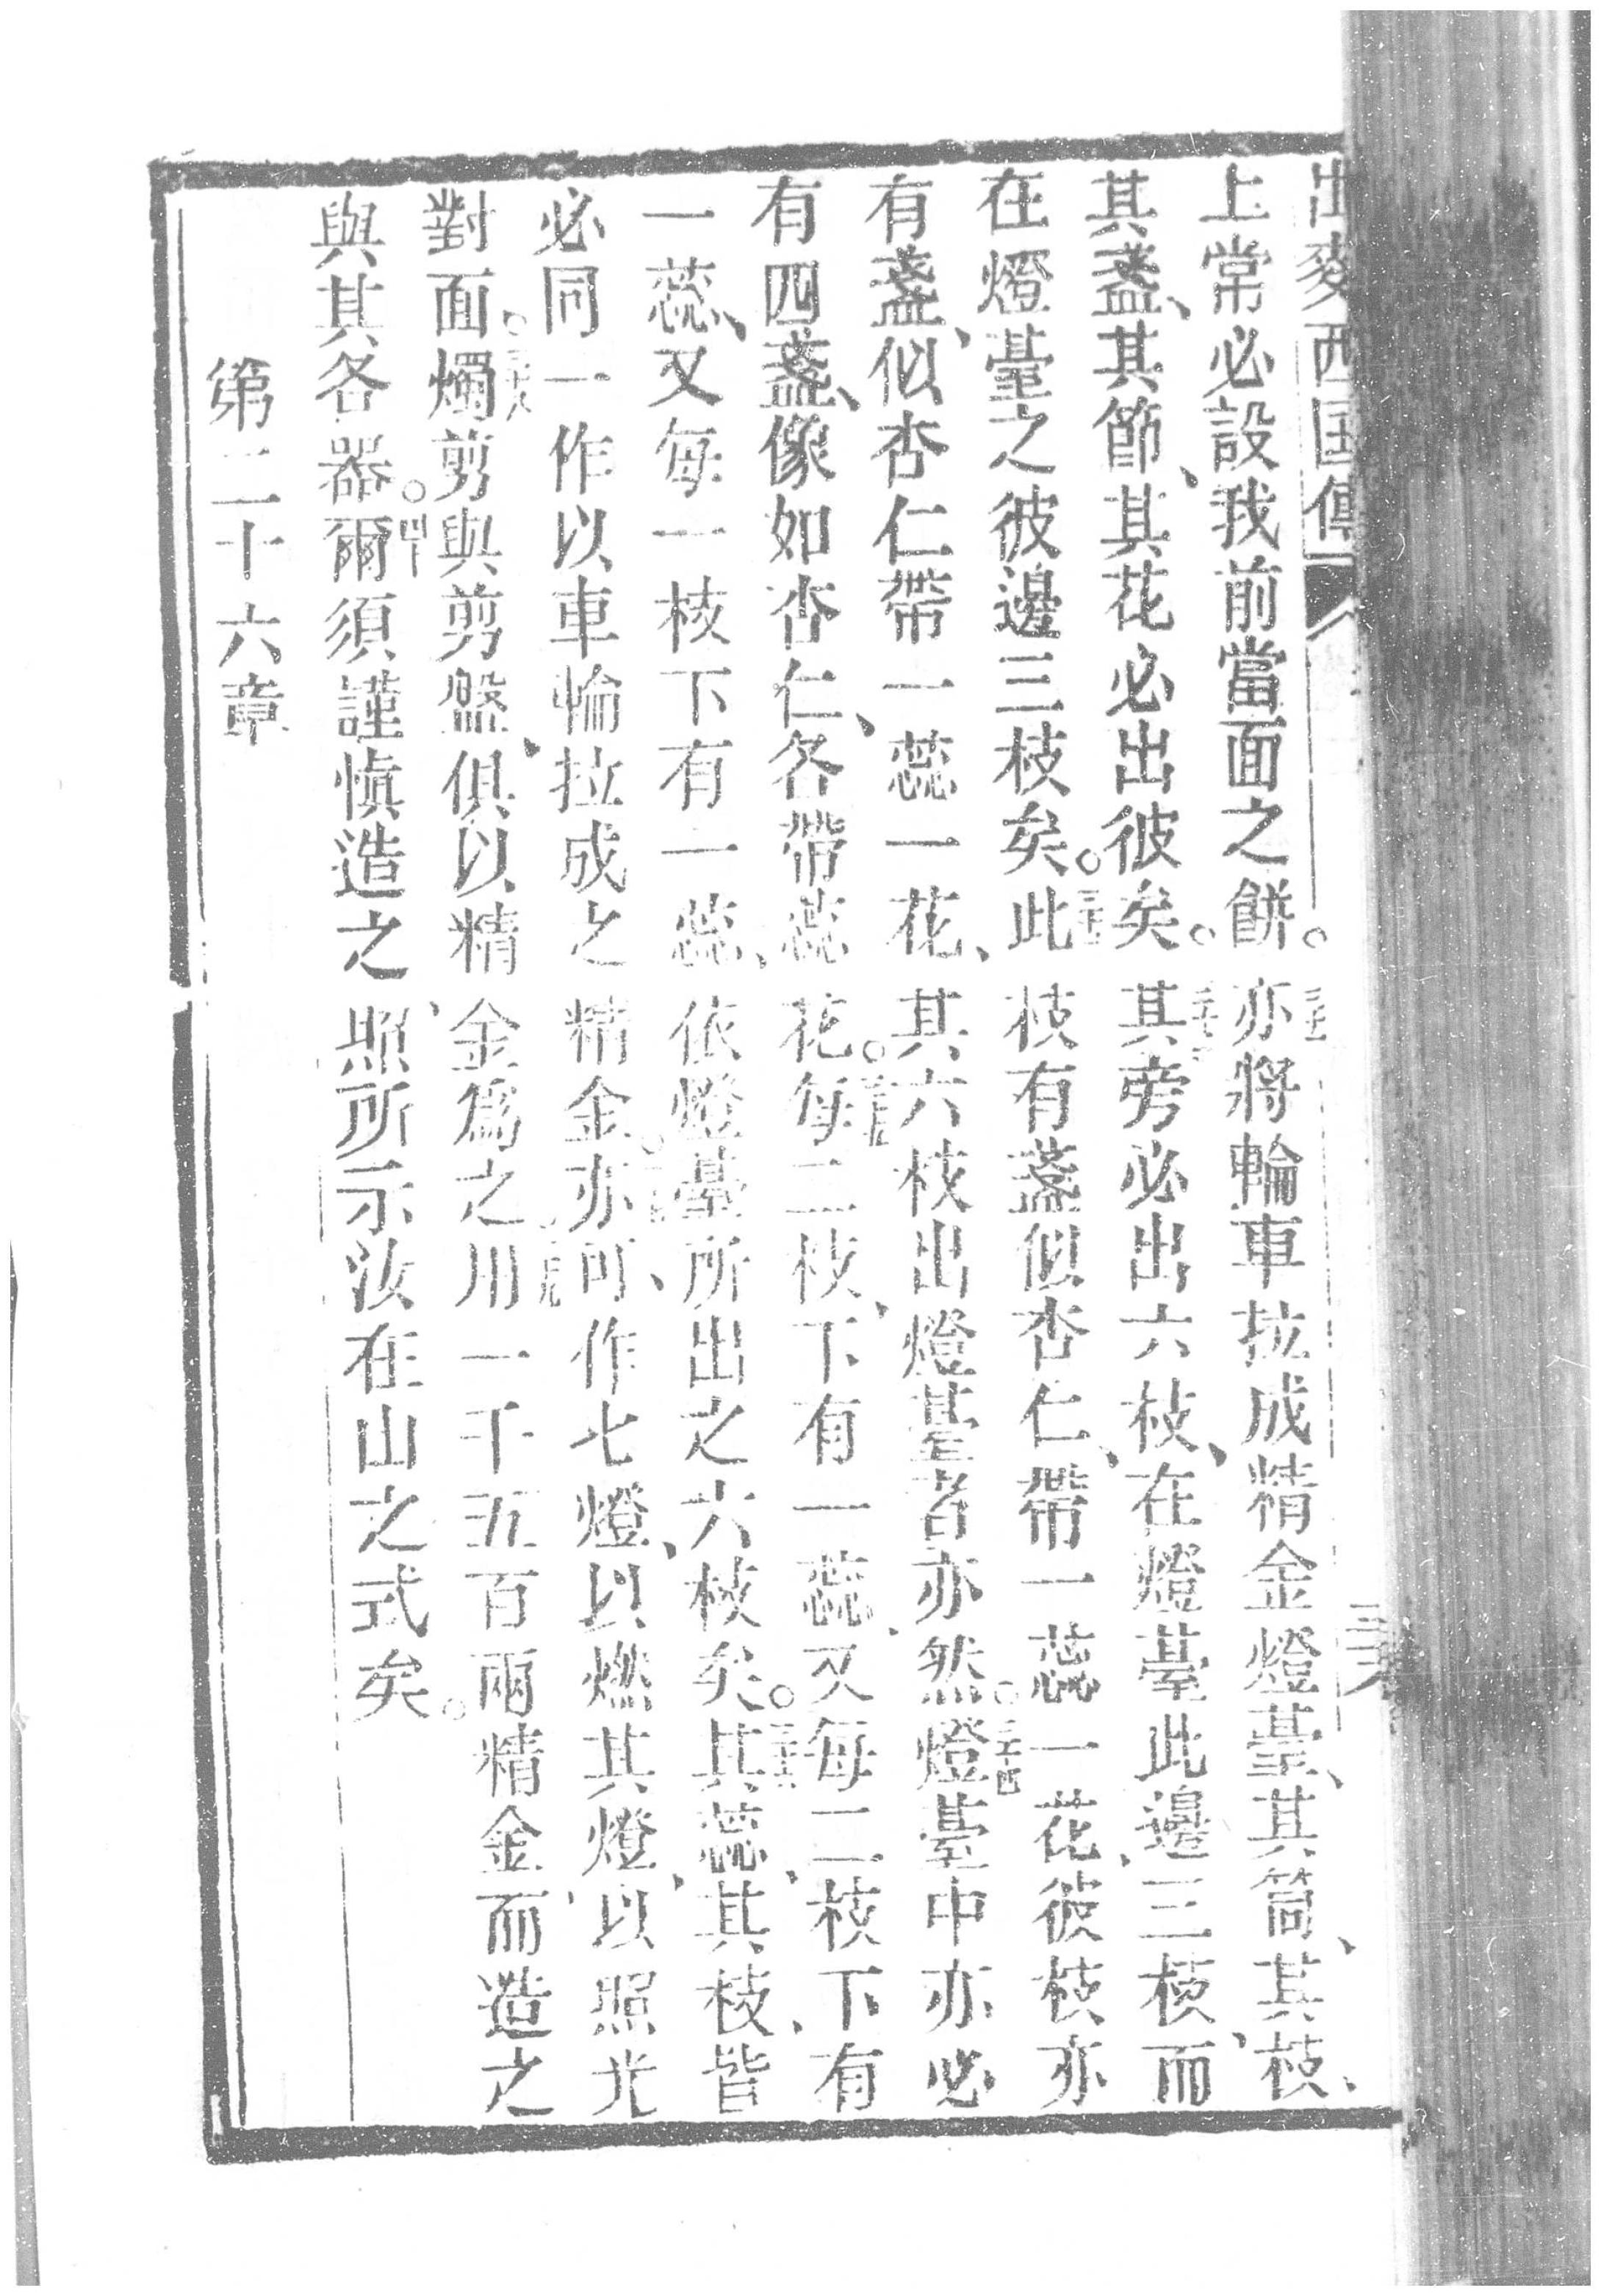 出麥西国傳
上常必設我前當面之餅。三十一亦將輪車拉成精金燈臺、其筒、其枝、
其盞、其節、其花必出彼矣。三十二其旁必出六枝、在燈臺此邊三枝、而
在燈臺之彼邊三枝矣。三十三此枝有盞似杏仁、帶一蕊一花、彼枝亦
有盞、似杏仁帶一蕊一花、其六枝出燈臺者亦然。三十四燈臺中亦必
有四盞、像如杏仁、各帶蕊花。三十五每二枝、下有一蕊、又每二枝下有
一蕊、又每一枝下有一蕊、依燈臺所出之六枝矣。三十六其蕊、其枝、皆
必同一作以車輪拉成之精金。亦可、作七燈、以燃其燈、以照光
對面。燭剪與剪盤、俱以精金爲之。三十九用一千五百兩精金而造之
與其各器。四十爾須謹愼造之、照所示汝在山之式矣。
第二十六章